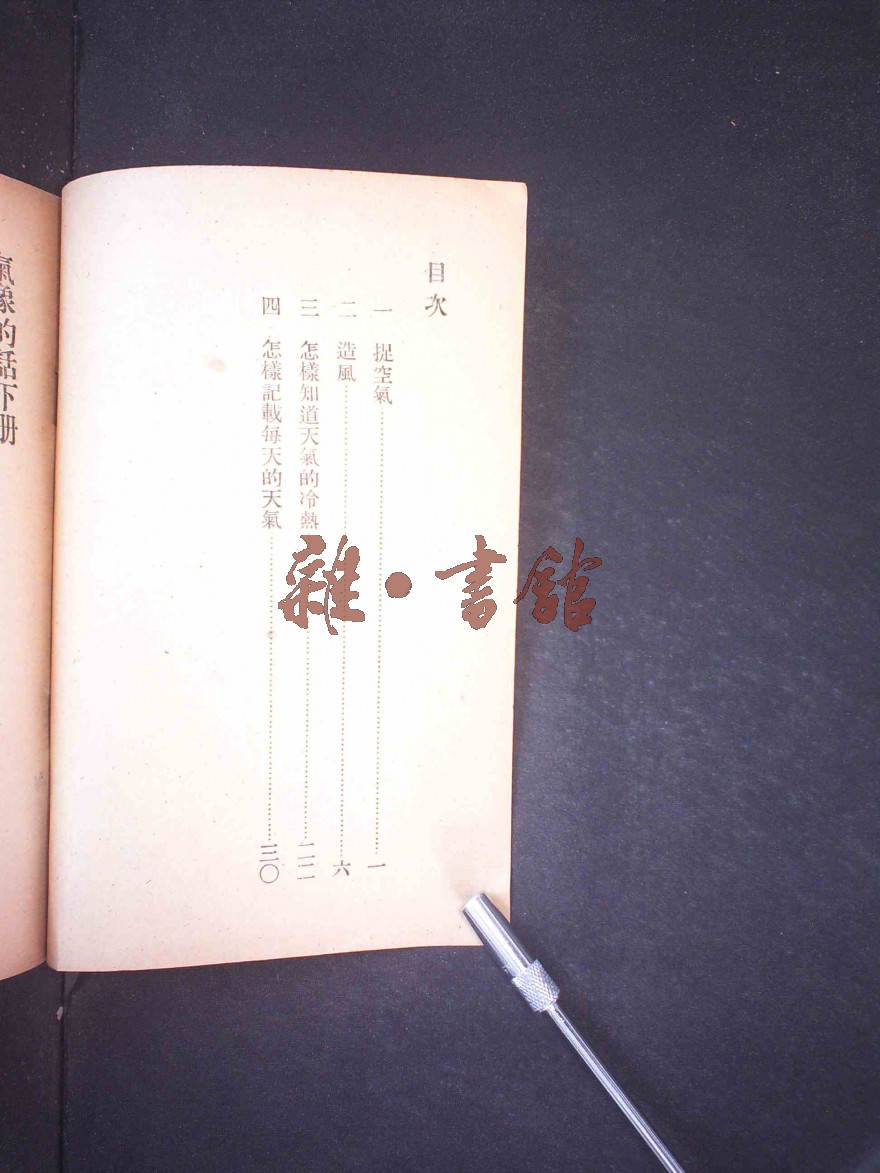 目次
一 捉空氣 一
二 造風 六
三 怎樣知道天氣的冷熱 二二
四 怎樣記載每天的天氣 三〇
氣象的話下册
雜·書館